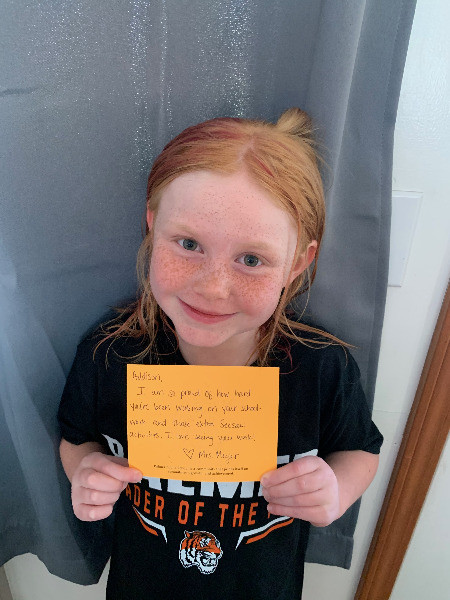 Addison,
I am so proud of how hard
you've been working on your school
work and those extra Seesaw
activities. I am seeing your work,
♡ Mrs. Meyer
PREMIER
DER OF THE